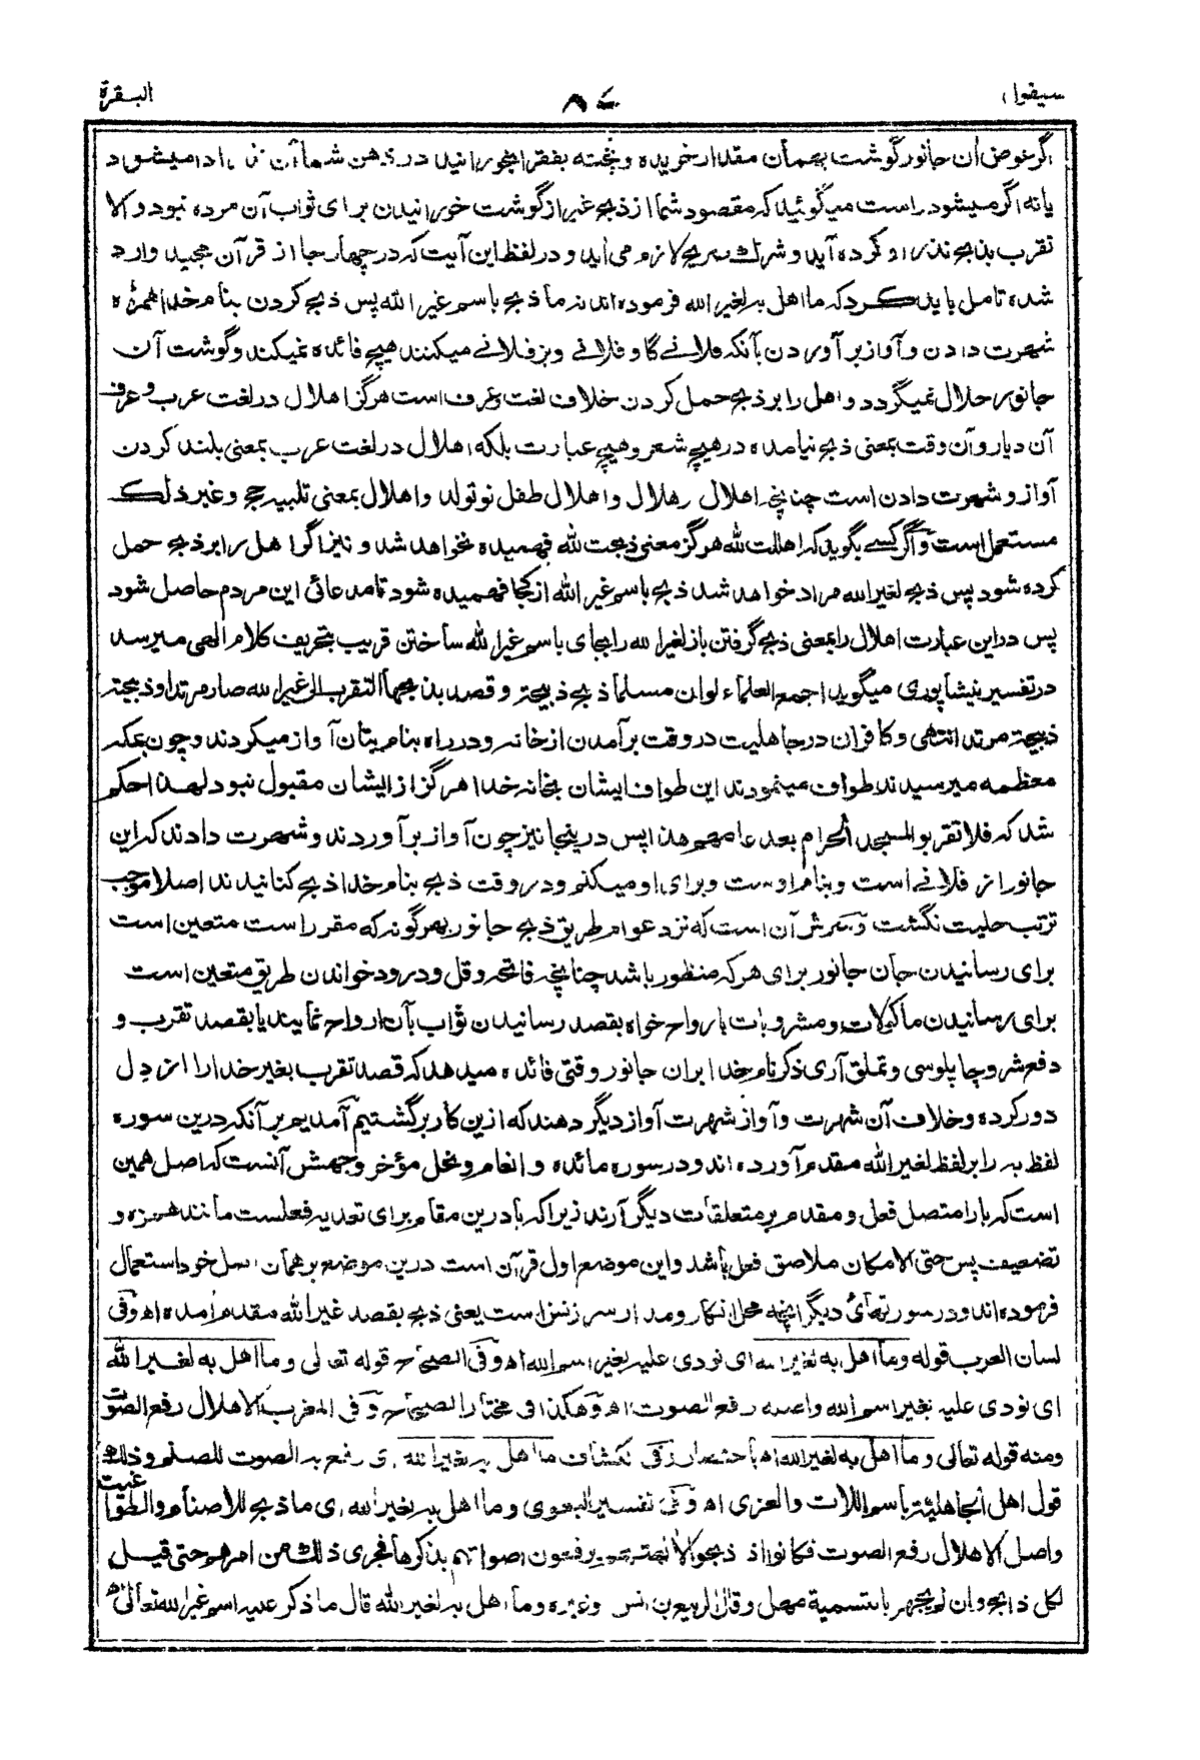 سیقول ۲
۸۷
البقرة
اگر عوض آن جانور گوشت بهمان مقدار خریده و پخته بفقرا بخورانید در ذهن شما آن نذر ادا میشود
یا نه اگر میشود راست میگوئید که مقصود شما از ذبح غیر از گوشت خورانیدن برای ثواب آن مرده نبود والا
تقرب بذبح نذر او کرده آید و شرک صریح لازم می آید و در لفظ این آیت که در چهار جا از قرآن مجید وارد
شده تامل باید کرد که ما اهل به لغیر الله فرموده اند نه ما ذبح باسم غیر الله پس ذبح کردن بنام خدا همراه
شهرت دادن و آواز بر آوردن بآنکه فلانے گاو فلانے و بز فلانے میکنند هیچ فائده نمیکند و گوشت آن
جانور حلال نمیگردد و اهل را بر ذبح حمل کردن خلاف لغت و عرف است هرگز اهلال در لغت عرب و عرف
آن دیار و آن وقت بمعنی ذبح نیامده در هیچ شعر و هیچ عبارت بلکه اهلال در لغت عرب بمعنی بلند کردن
آواز و شهرت دادن است چنانچه اهلال هلال و اهلال طفل نو تولد و اهلال بمعنی تلبیه حج و غیر ذلک
مستعمل است و اگر کسے بگوید که اهللت لله هرگز معنی ذبحت لله فهمیده نخواهد شد و نیز اگر اهل را بر ذبح حمل
کرده شود پس ذبح لغیر الله مراد خواهد شد ذبح باسم غیر الله از کجا فهمیده شود تا مدعائی این مردم حاصل شود
پس دراین عبارت اهلال را بمعنی ذبح گرفتن باز لغیر الله را بجای باسم غیر الله ساختن قریب بتحریف کلام الهی میرسد
در تفسیر نیشاپوری میگوید اجمع العلماء لو ان مسلما ذبح ذبیحة و قصد بذبحها التقرب الی غیر الله صار مرتدا وذبیحته
ذبیحة مرتد انتهی و کافران در جاهلیت در وقت برآمدن از خانه و در راه بنام بتان آواز میکردند و چون بمکه
معظمه میرسیدند طواف مینمودند این طواف ایشان بخانه خدا هرگز از ایشان مقبول نبود لهذا حکم
شد که فلا تقربوا المسجد الحرام بعد عامهم هذا پس درینجا نیز چون آواز برآوردند و شهرت دادند که این
جانور از فلانے است و بنام اوست و برای او میکنم و در وقت ذبح بنام خدا ذبح کنانیدند اصلا موجب
ترتب حلیت نگشت و سرش آن است که نزد عوام طریق ذبح جانور بهر گونه که مقرر است متعین است
برای رسانیدن جان جانور برای هر که منظور باشد چنانچه فاتحه و قل و درود خواندن طریق متعین است
برای رسانیدن ماکولات و مشروبات بارواح خواه بقصد رسانیدن ثواب بآن ارواح نمایند یا بقصد تقرب و
دفع شر و چاپلوسی و تملق آری ذکر نام خدا بران جانور وقتی فائده میدهد که قصد تقرب بغیر خدارا از دل
دور کرده و خلاف آن شهرت و آواز شهرت آواز دیگر دهند که ازین کار برگشتیم آمدیم بر آنکه درین سوره
لفظ به را بر لفظ لغیر الله مقدم آورده اند و در سوره مائده و انعام و نحل مؤخر وجهش آنست که اصل همین
است که با را متصل فعل و مقدم بر متعلقات دیگر آرند زیرا که با درین مقام برای تعدیه فعلست مانند همزه و
تضعیف پس حتی الامکان ملاصق فعل باشد و این موضع اول قرآن است درین موضع بر همان اصل خود استعمال
فرموده اند و در سورتهائی دیگر انچه محل انکار و مدار سرزنش است یعنی ذبح بقصد غیر الله مقدم آمده اه وفی
لسان العرب قوله وما اهل به لغیر الله ای نودی علیه بغیر اسم الله اه وفی الصحاح قوله تعالی وما اهل به لغیر الله
ای نودی علیه بغیر اسم الله واصله رفع الصوت اه وهکذا فی مختار الصحاح وفی المغرب الاهلال رفع الصوت
ومنه قوله تعالی وما اهل به لغیر الله اه باختصار وفی الکشاف ما اهل به لغیر الله ای رفع به الصوت للصنم وذلک
قول اهل الجاهلیة باسم اللات والعزی اه وفی تفسیر البغوی وما اهل به لغیر الله ای ما ذبح للاصنام والطواغیت
واصل الاهلال رفع الصوت فکانوا اذ ذبحوا لالهتهم یرفعون اصواتهم بذکرها فجری ذلک من امرهم حتی قیل
لکل ذابح وان لم یجهر بالتسمیة مهل وقال الربیع بن انس وغیره وما اهل به لغیر الله قال ما ذکر علیه اسم غیر الله تعالی اه